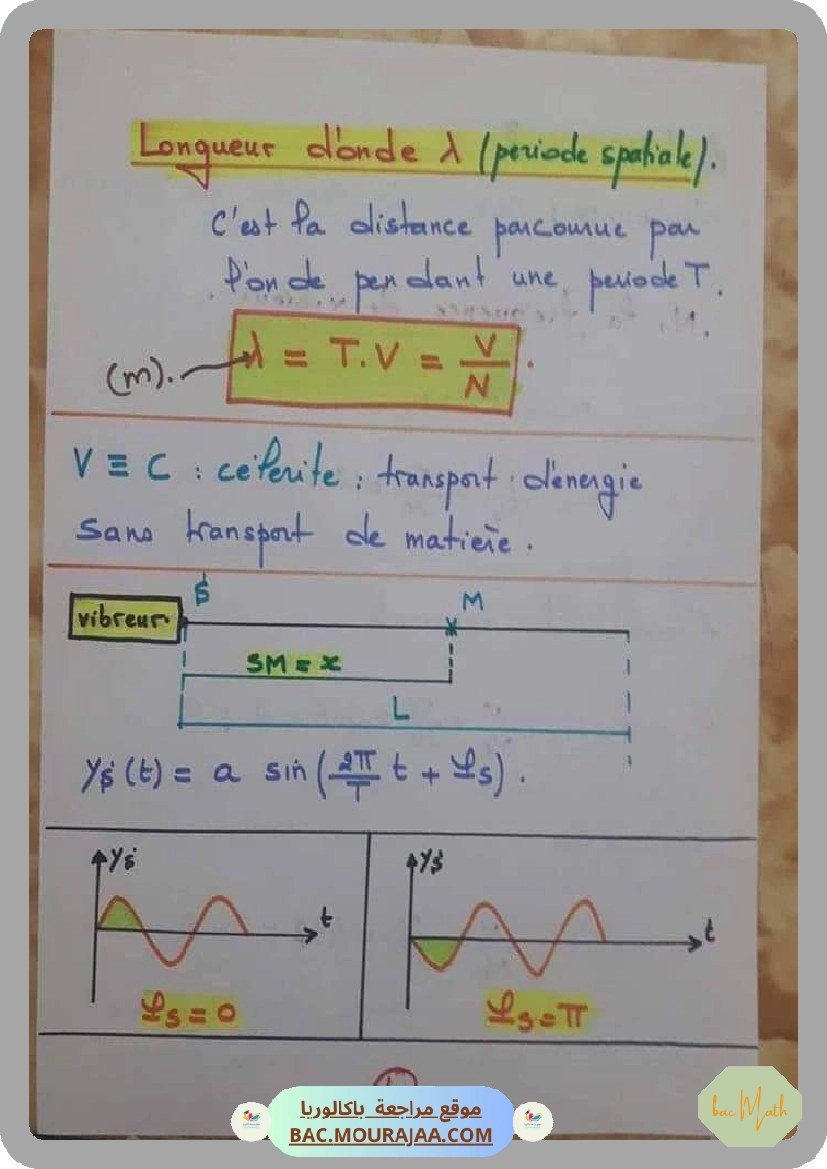 Longueur d'onde λ (periode spatiale).
C'est la distance parcourue par
l'onde pendant une periode T.
(m). λ = T.V = V/N .
V ≡ C : célérite : transport d'énergie
sans transport de matière.
S M
vibreur
SM = x
L
ys(t) = a sin(2π/T t + φs).
ys t
φs = 0
ys t
φs = π
موقع مراجعة باكالوريا
BAC.MOURAJAA.COM
bac Math